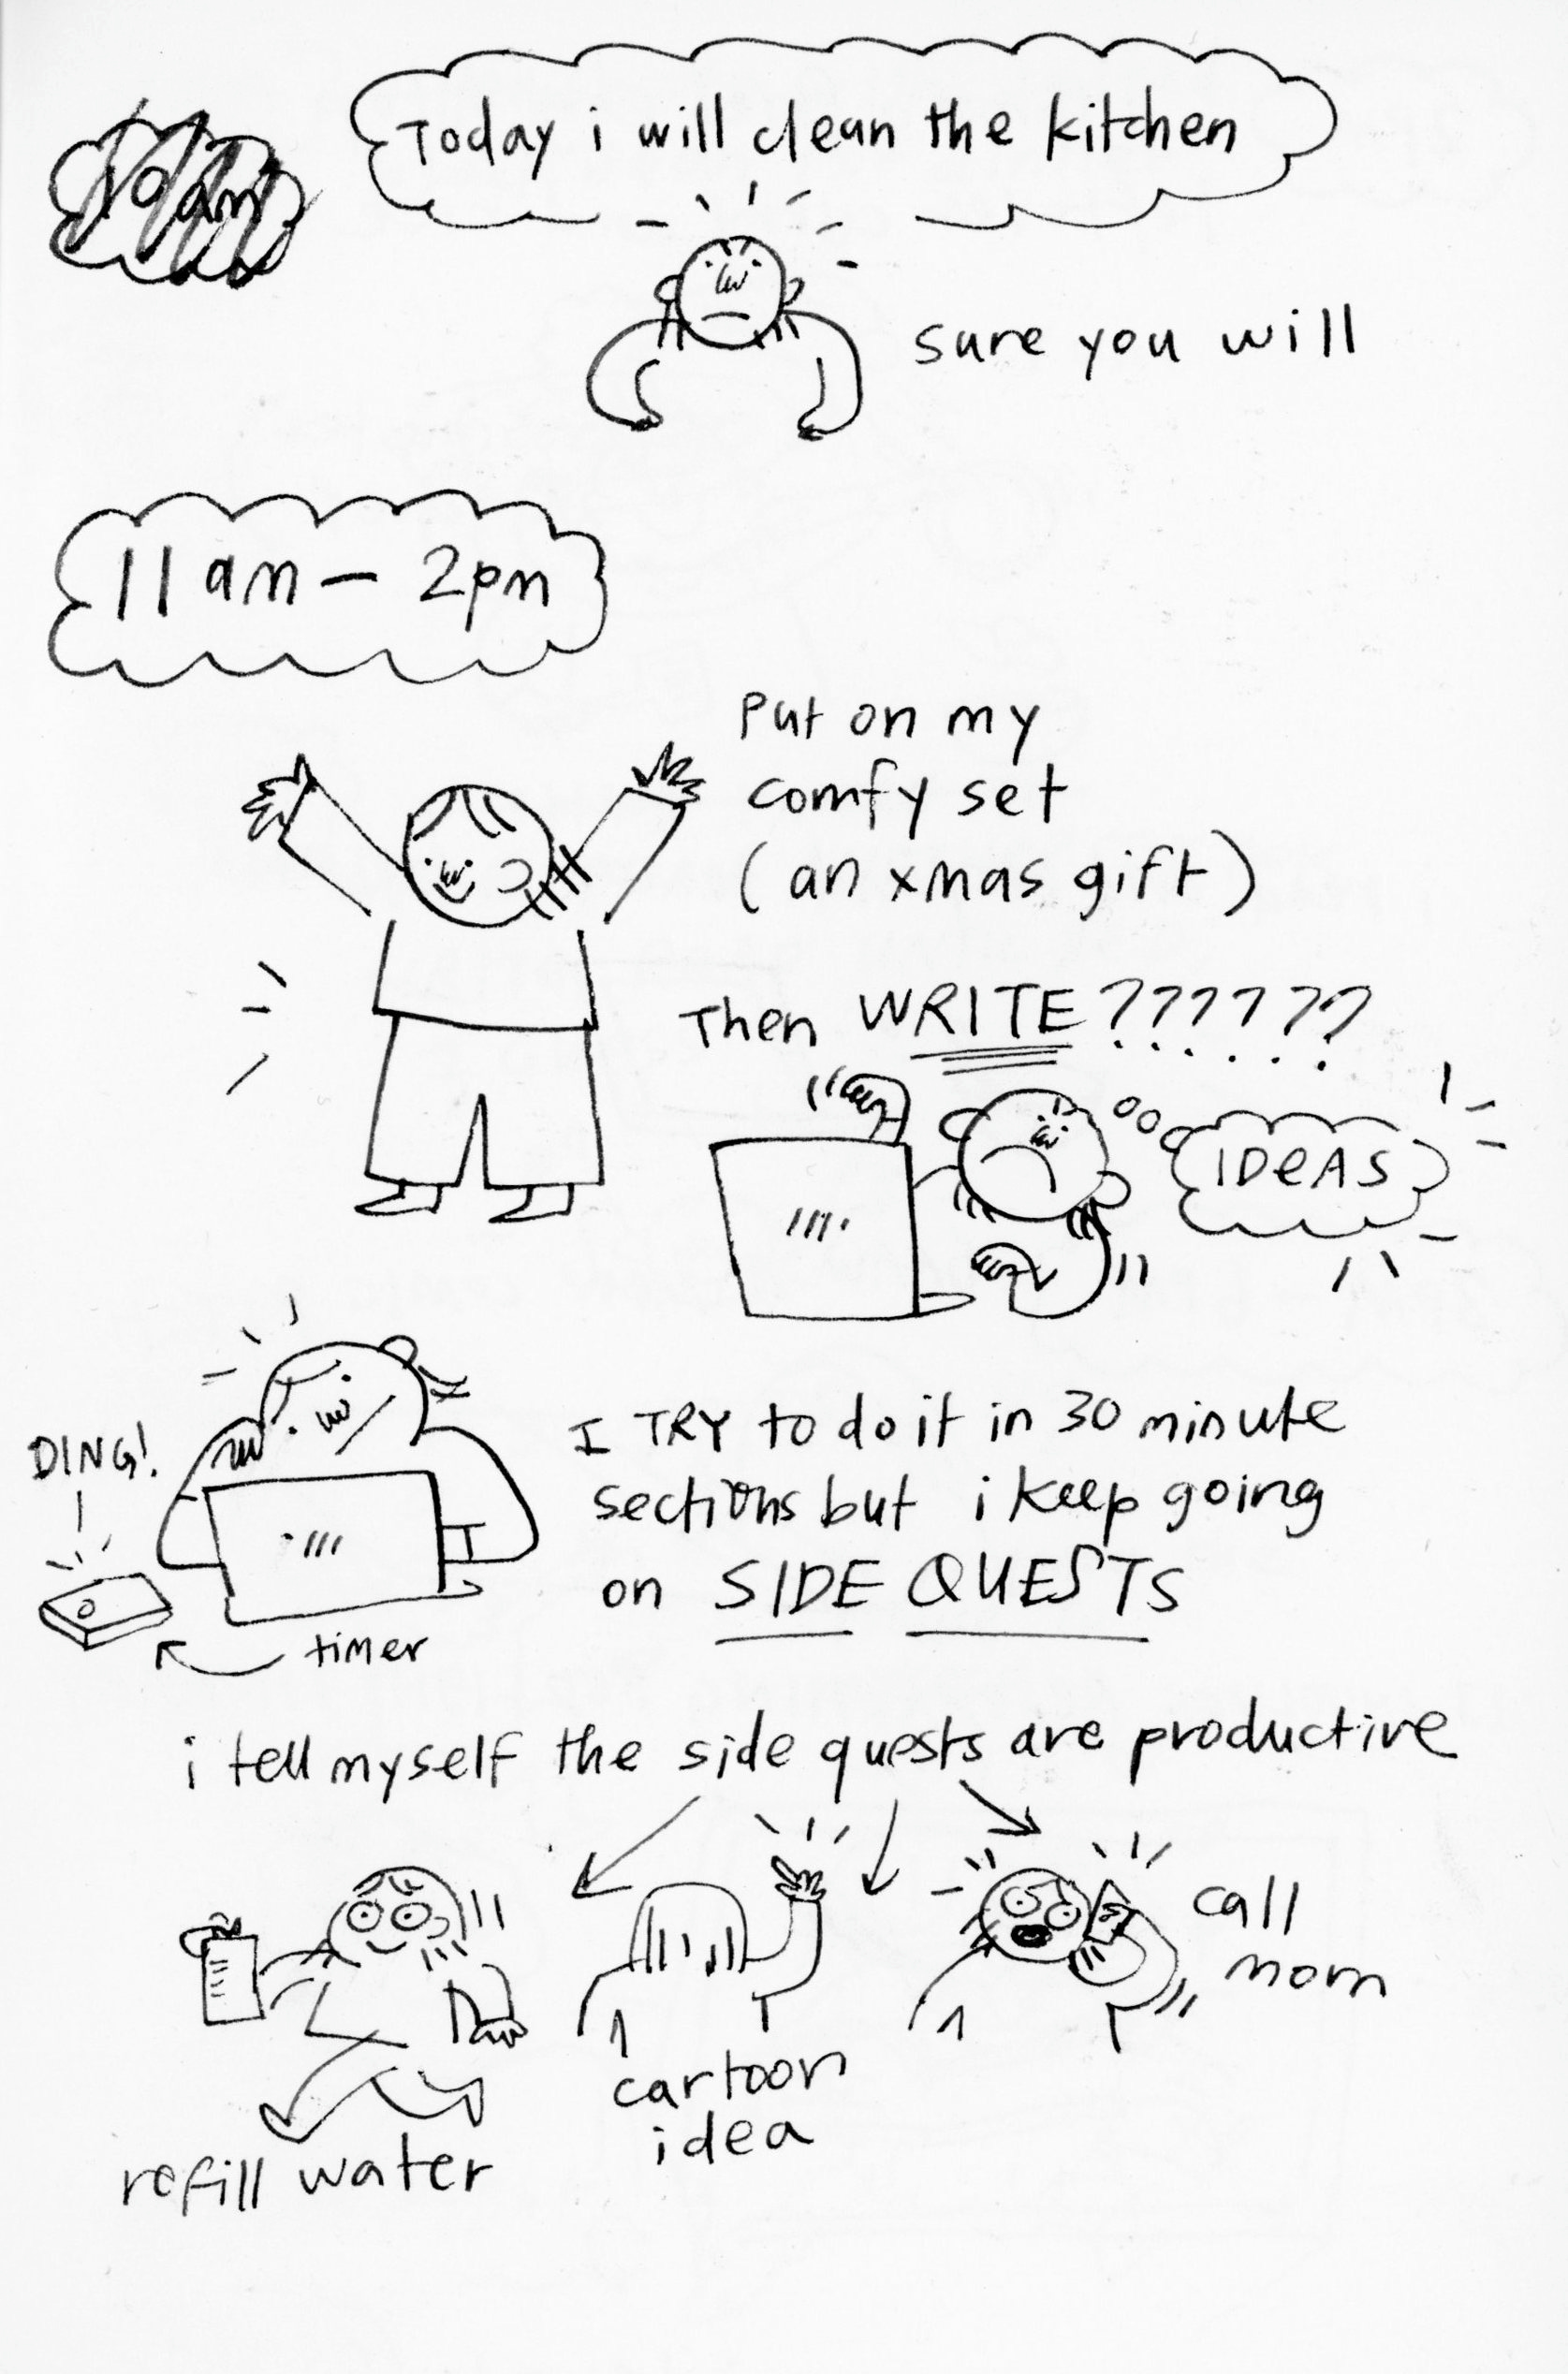 Today i will clean the kitchen
10am
sure you will
11am – 2pm
Put on my
comfy set
(an xmas gift)
Then WRITE ???????
IDEAS
DING!
I TRY to do it in 30 minute
sections but i keep going
on SIDE QUESTS
timer
i tell myself the side quests are productive
call
mom
cartoon
idea
refill water